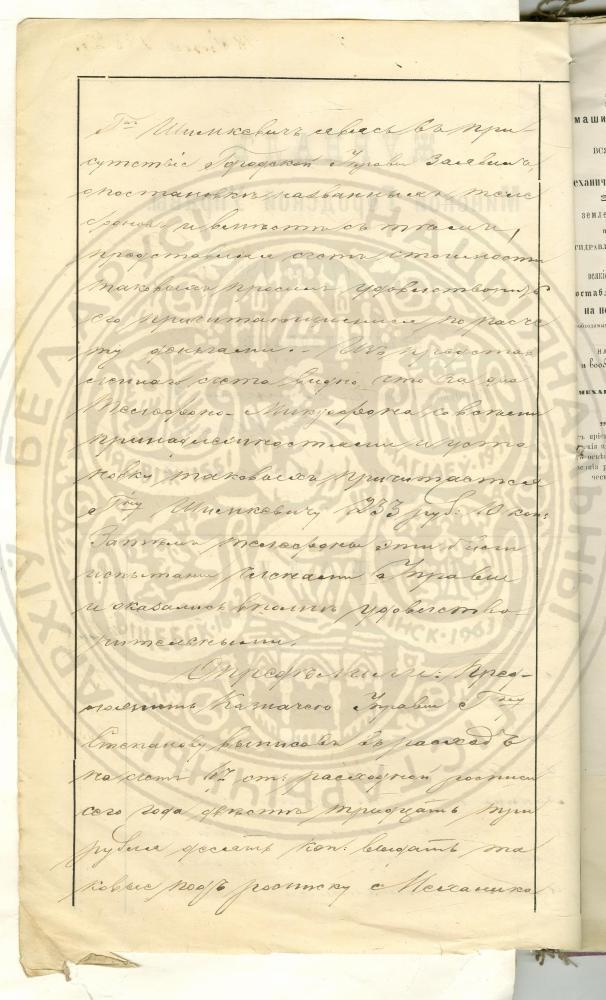 Г-нъ Шимкевичъ явясь въ при-
сутствіе Городской Управы заявилъ,
о постановкѣ названныхъ теле
фоновъ и вмѣстѣ съ тѣмъ,
представляя счетъ стоимости
таковыхъ просилъ удовлетворить
его причитающимися по расче
ту деньгами. Изъ представ
леннаго счета видно, что за два
Телефоно-Микрофона со всѣми
принадлежностями и уста
новку таковыхъ причитается
Г-ну Шимкевичу 233 руб: 10 коп:
Затѣмъ телефоны эти были
испытаны Членами Управы
и оказались вполнѣ удовлетво
рительными.
Опредѣлили: Пред-
ложить Казначею Управы Г-ну
Степанову выписавъ въ расходъ
на счетъ 17 ст: расходной росписи
сего года двѣсти тридцать три
рубля десять коп: выдать та
ковые подъ росписку Механика
маши
вся
еханич
земле
гидравл
всякі
оставл
на не
и вооб
механ